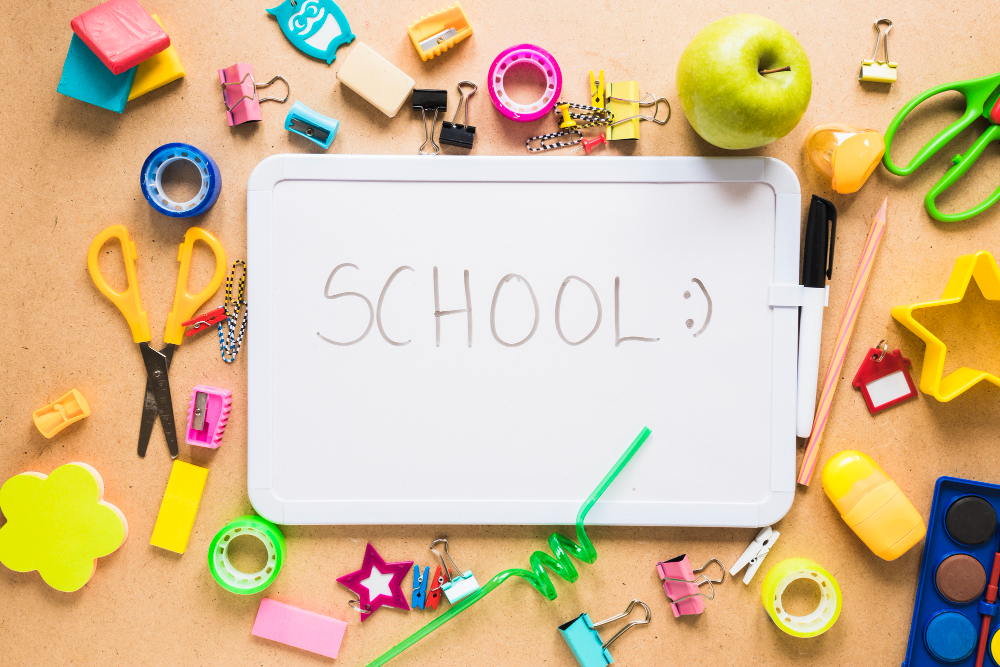 SCHOOL :)